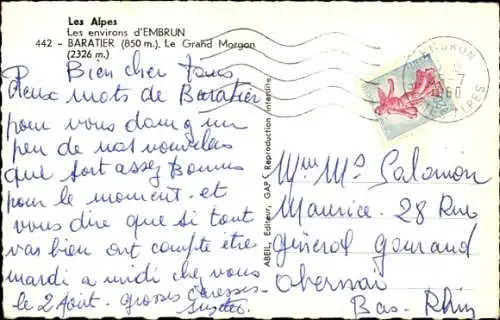 Les Alpes
Les environs d'EMBRUN
442 - BARATIER (850 m.). Le Grand Morgon
(2326 m.)
Bien cher tous
Deux mots de Baratier
pour vous donner un
peu de nos nouvelles
que sont assez Bonnes
pour le moment. et
vous dire que si tout
vas bien ont compte être
mardi a midi chez vous
le 2 Aout. grosses caresses
Suzette
ABEIL, Editeur, GAP. Reproduction interdite
EMBRUN
5-7
1960
ALPES
Mme Ms Salomon
Maurice. 28 Rue
général gouraud
obernai
Bas-Rhin